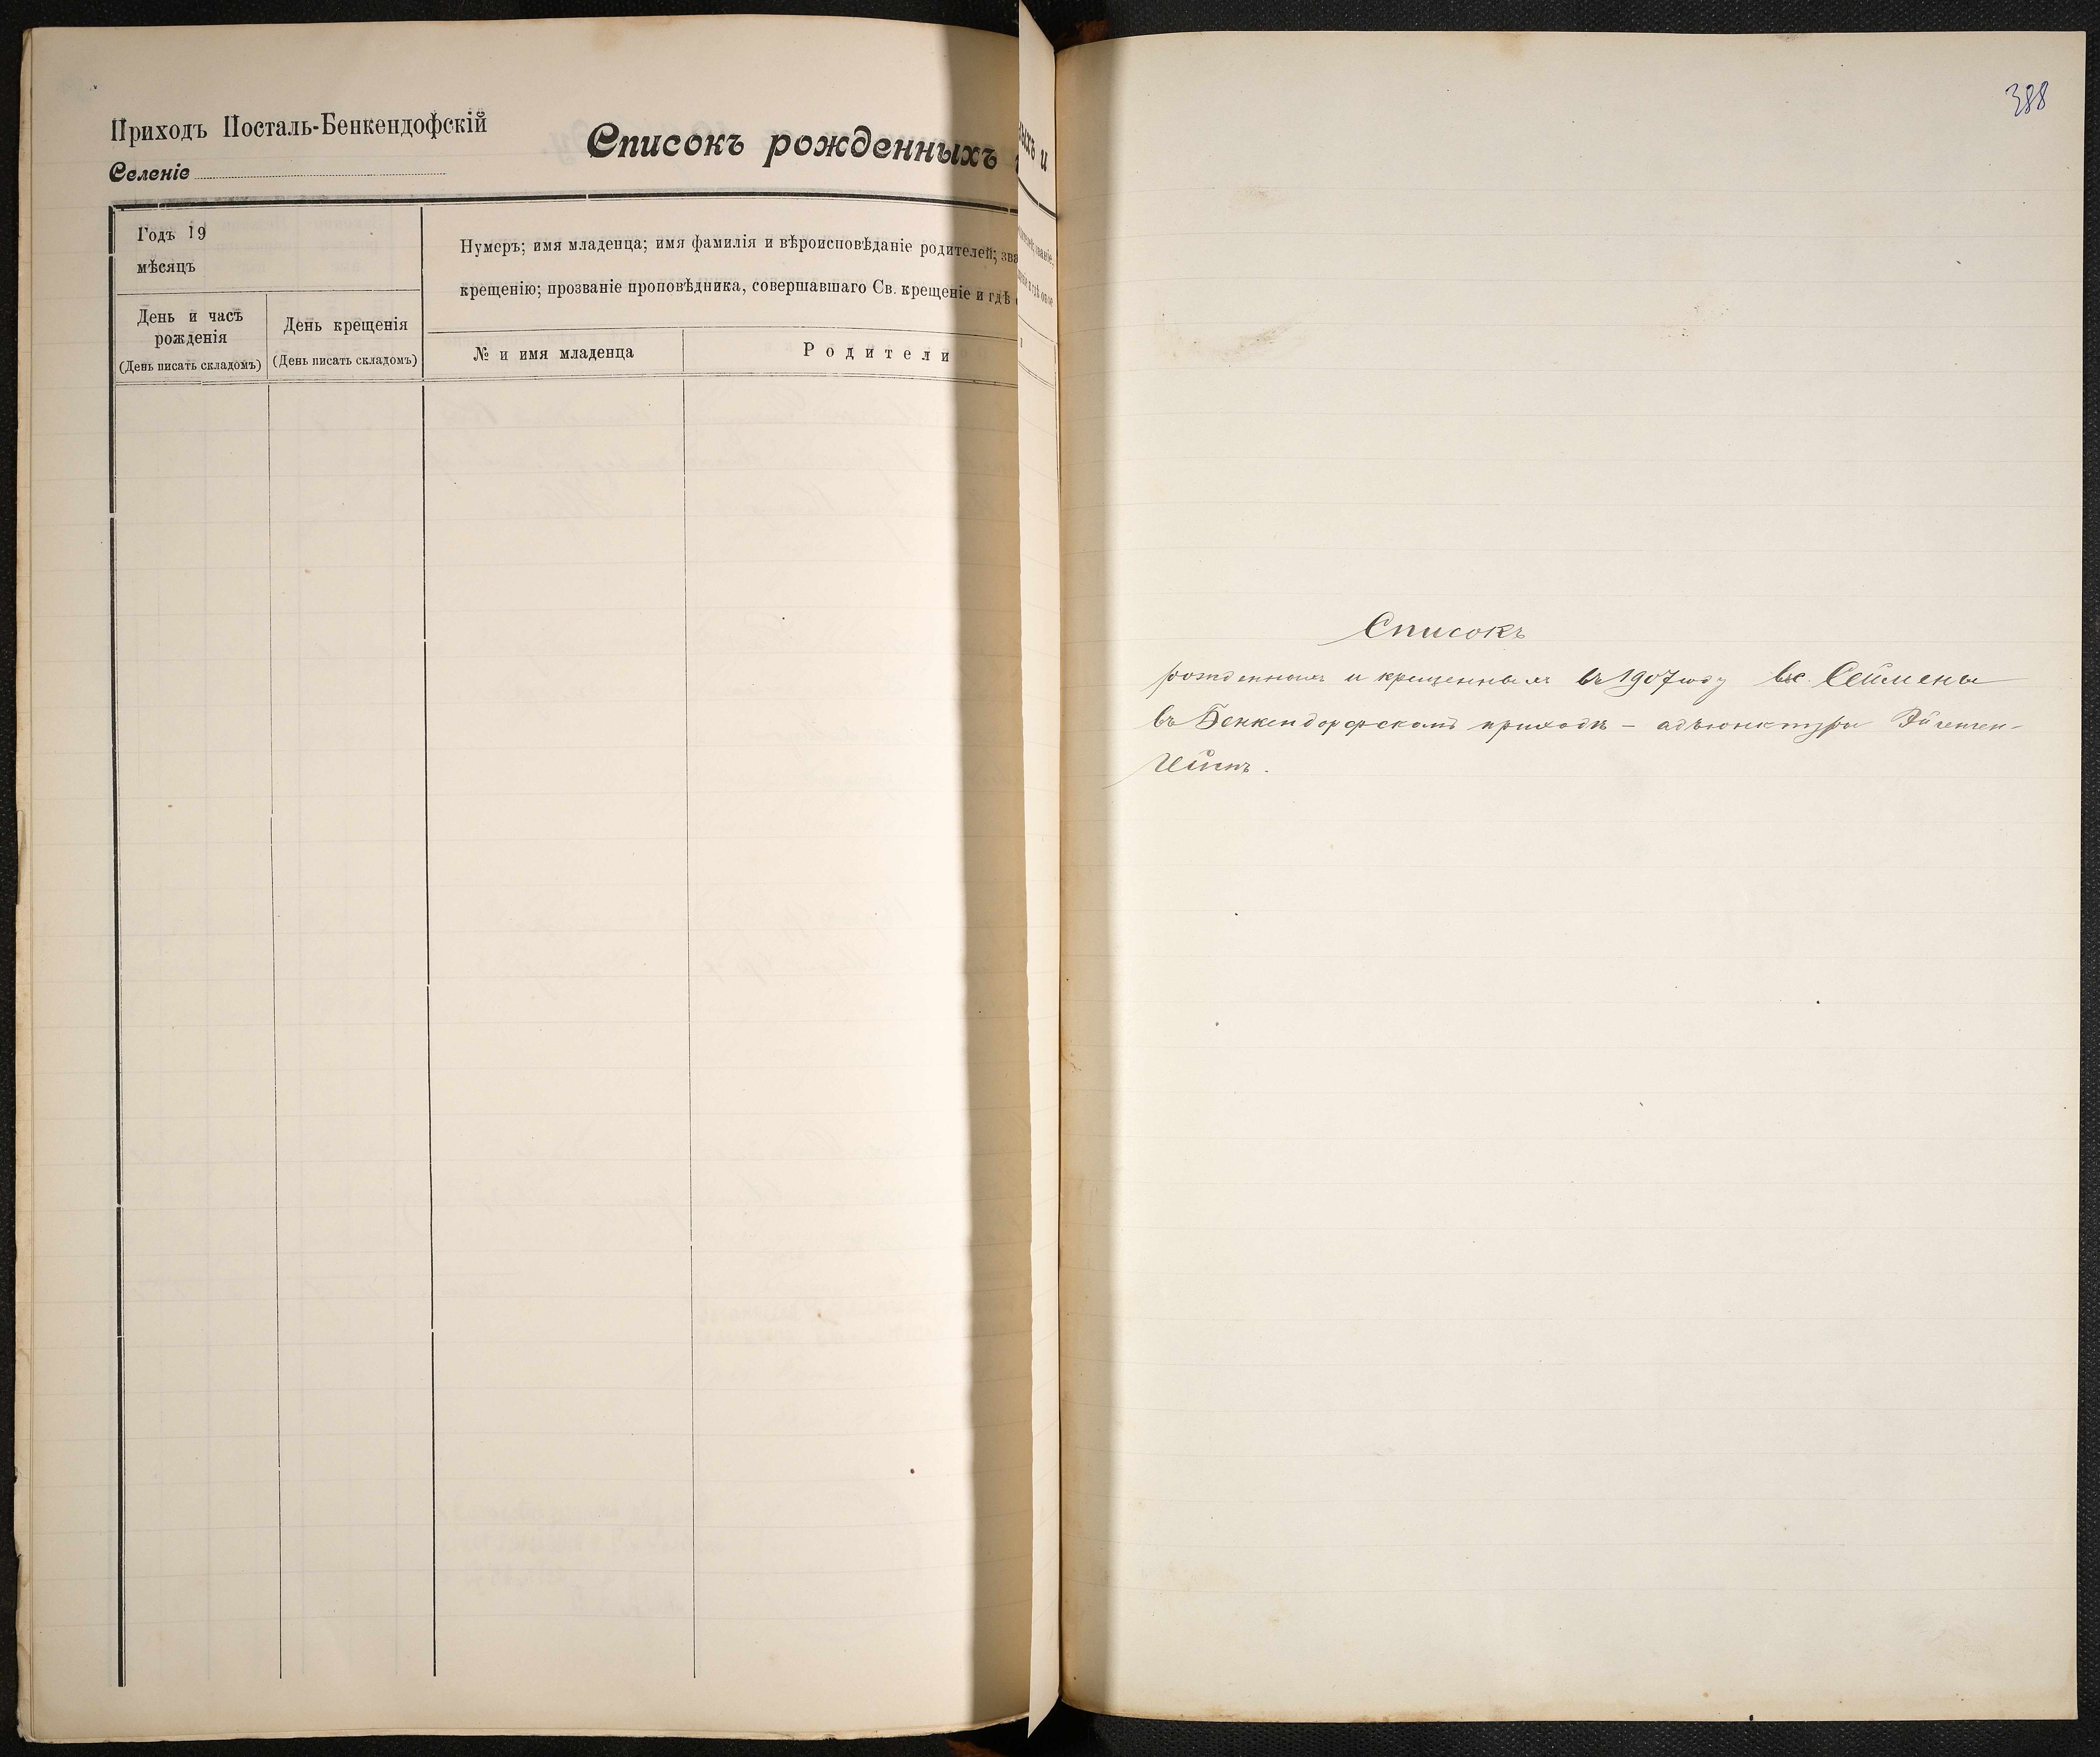 Приходъ Посталь-Бенкендофскій
Списокъ рожденныхъ
Селеніе
Годъ 19
мѣсяцъ
Нумеръ; имя младенца; имя фамилія и вѣроисповѣданіе родителей; зва
крещенію; прозваніе проповѣдника, совершавшаго Св. крещеніе и гдѣ
День и часъ
рожденія
(День писать складомъ)
День крещенія
(День писать складомъ)
№ и имя младенца
Родители
388
Списокъ
рожденныхъ и крещенныхъ въ 1907 году въ с. Сеймены
въ Бенкендорфскомъ приходѣ – адъюнктуры Эйгенген-
геймъ.